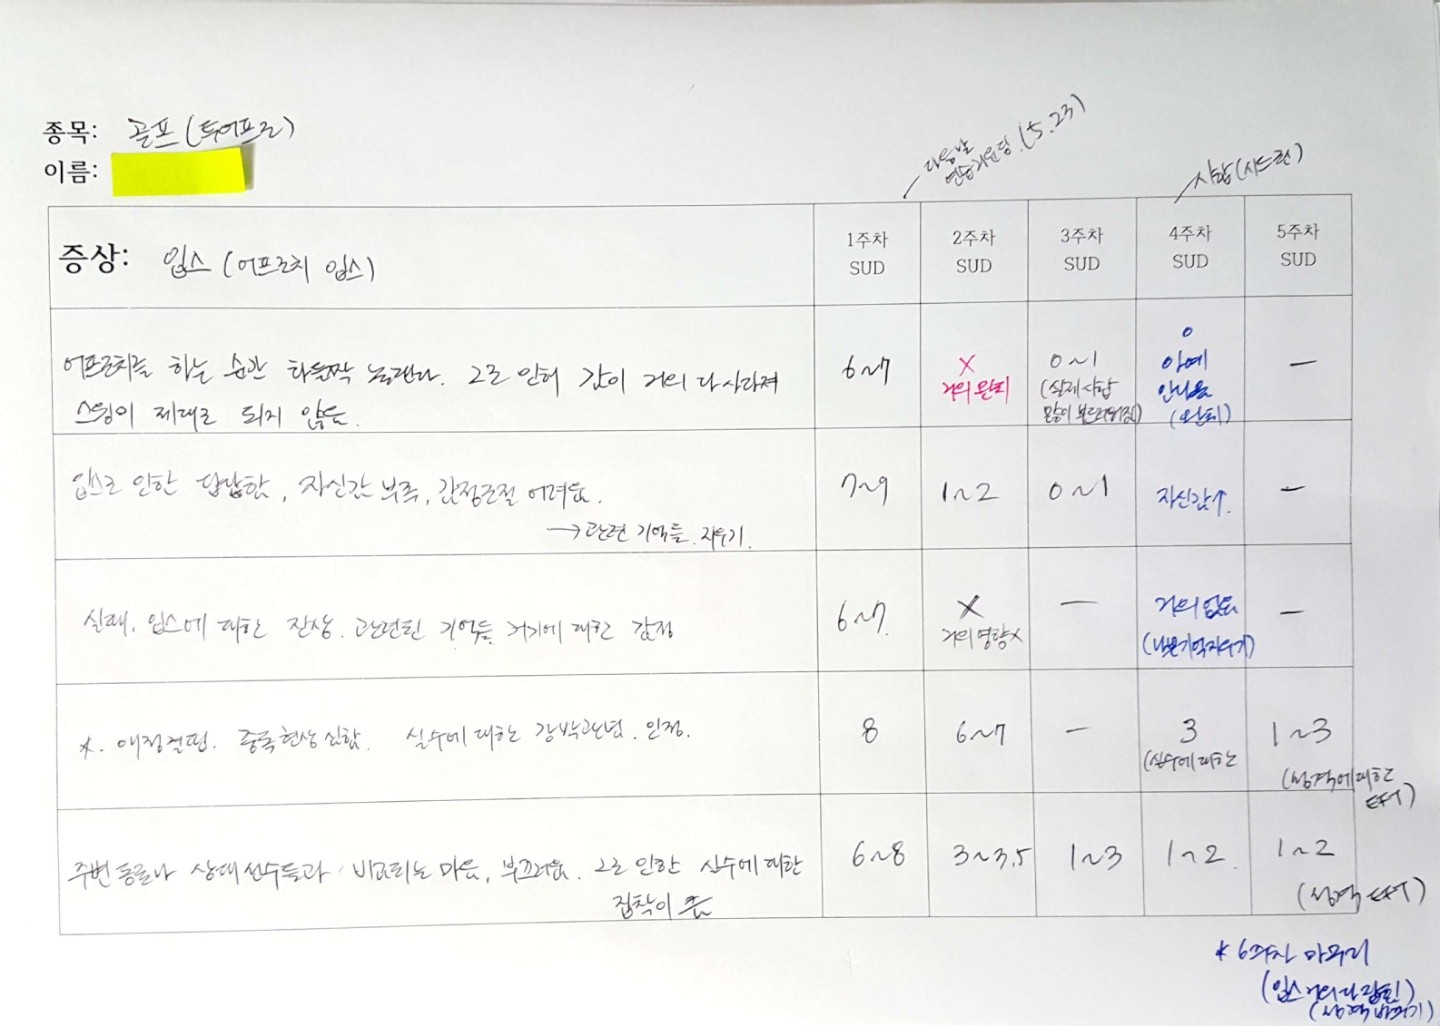 종목: 골프(투어프로)
이름:
다음날
연습라운딩.(5.23)
시합(시드전)
증상: 입스 (어프로치 입스)
1주차 SUD
2주차 SUD
3주차 SUD
4주차 SUD
5주차 SUD
어프로치를 하는 순간 화들짝 놀랜다. 그로 인해 감이 거의 다 사라져
스윙이 제대로 되지 않음.
6~7
X
거의 완치
0~1
(실제시합
많이 부드러워짐)
0
아예
안나옴
(완치)
—
입스로 인한 답답함, 자신감 부족, 감정조절 어려움.
→ 관련 기억들 지우기.
7~9
1~2
0~1
자신감↑.
—
실패, 입스에 대한 잔상. 관련된 기억들, 거기에 대한 감정
6~7.
X
거의 영향X
—
거의 없음
(나쁜기억지우기)
—
*. 애정결핍. 중독현상 심함. 실수에 대한 강박관념. 인정.
8
6~7
—
3
(실수에 대한
1~3
(성격에 대한
EFT)
주변 동료나 상대 선수들과 비교되는 마음, 부끄러움. 그로 인한 실수에 대한
집착이 큼
6~8
3~3.5
1~3
1~2.
1~2
(성격 EFT)
* 6주차 마무리
(입스 거의 다 잡힘)
(성격 바꾸기)